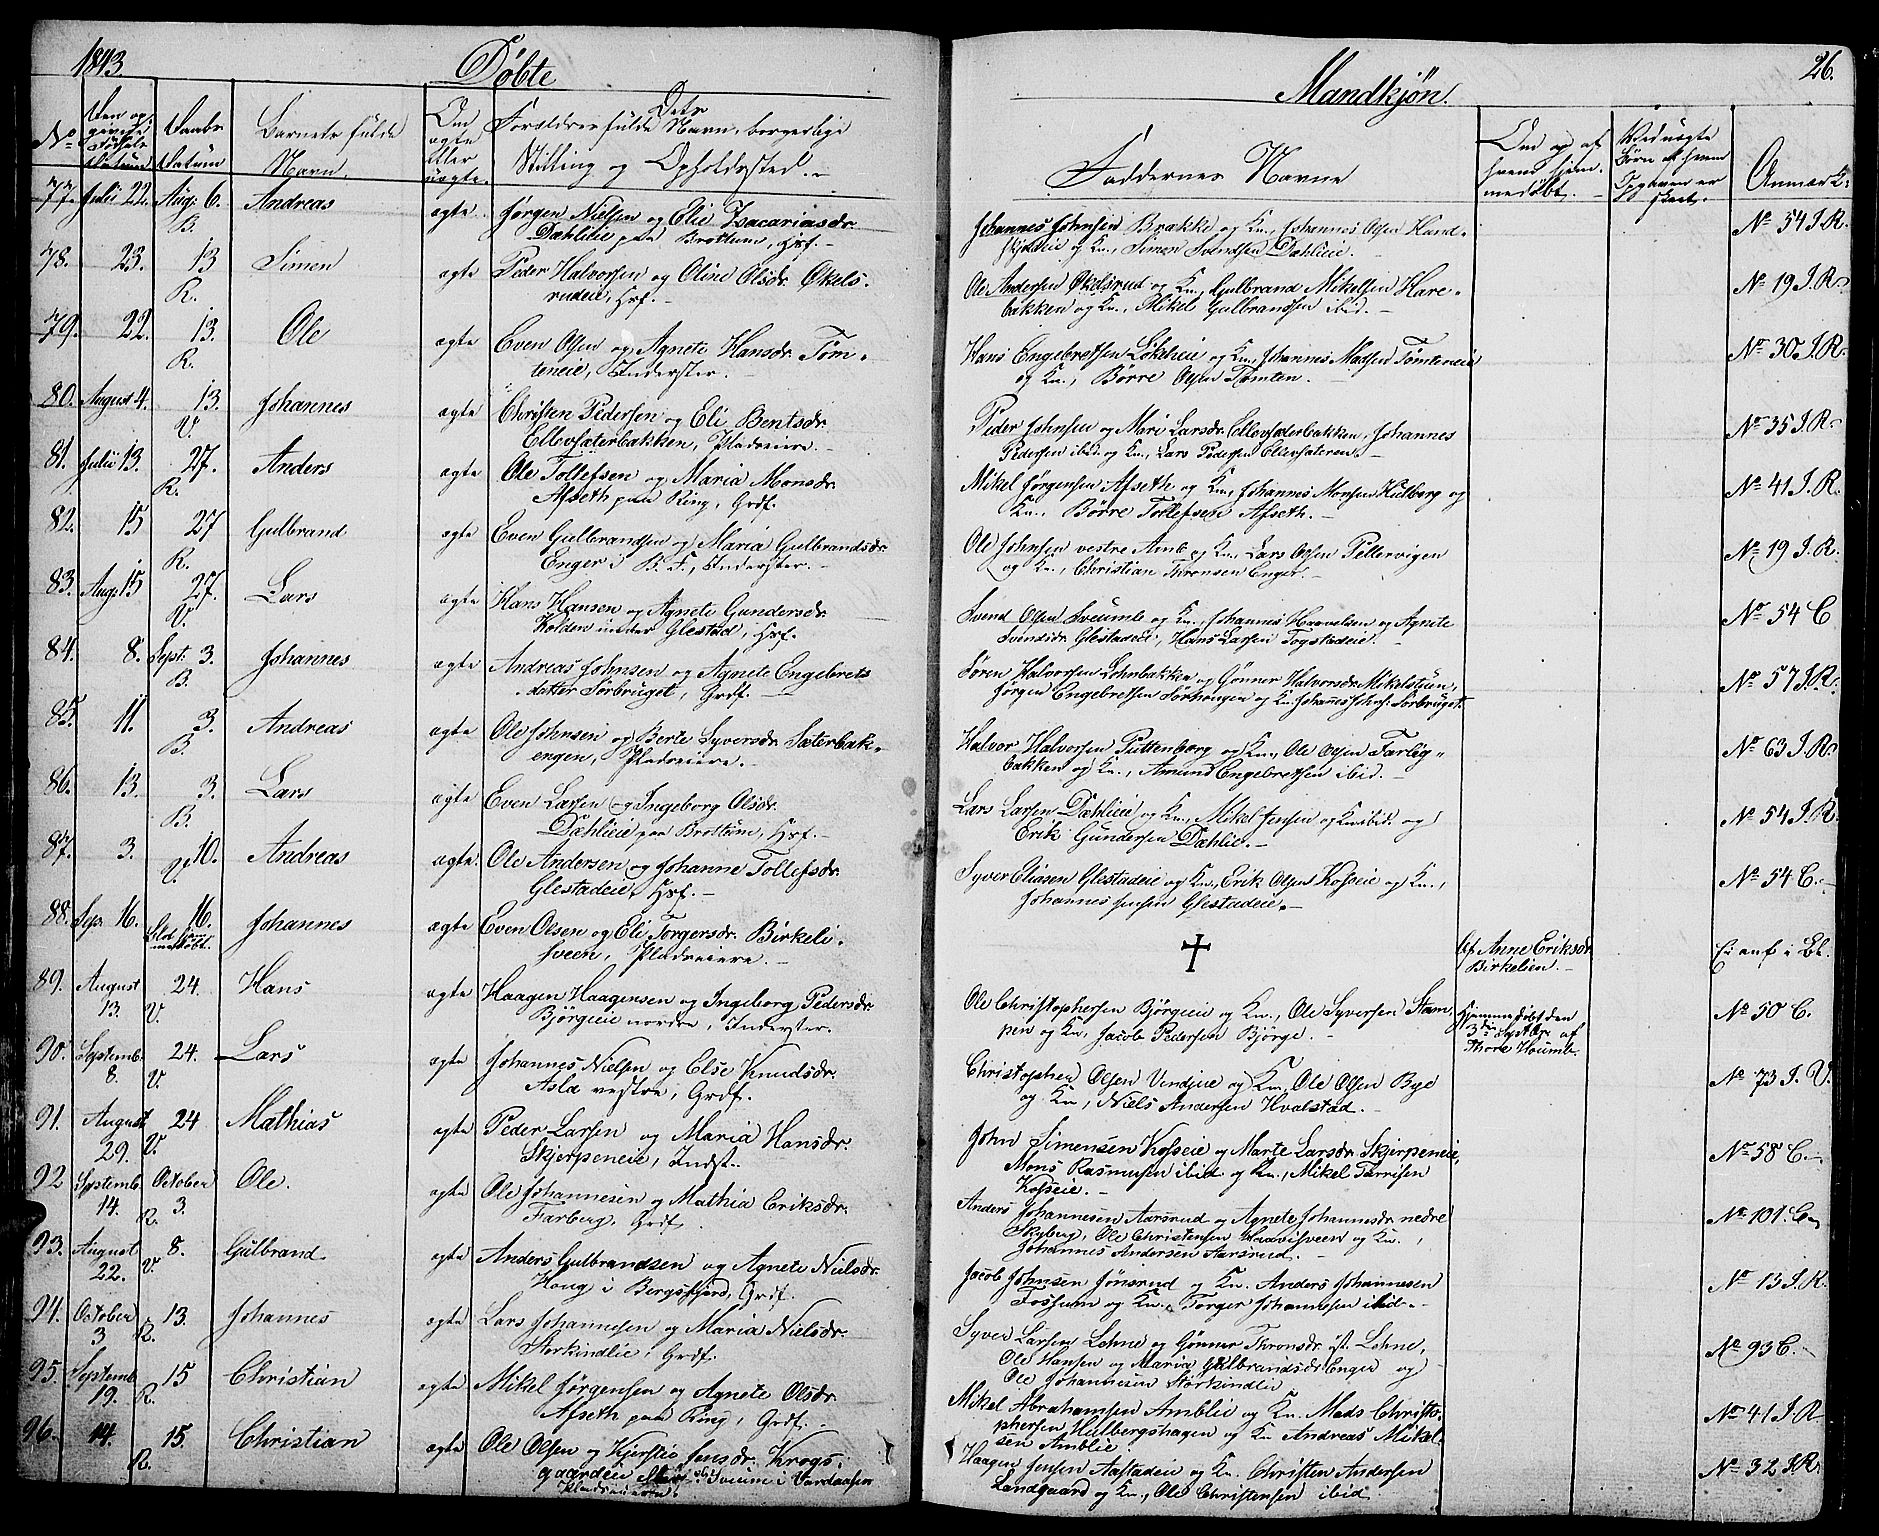 1843
Døbte
Mandkjøn.
26.
No
Den op-
givne
Fødsels
Datum
Daabs
Datum
Barnets fulde
Navn.
Om
ægte
eller
uægte.
Dets
Forældres fulde Navn, borgerlige
Stilling og Opholdssted.
Faddernes Navne
Om og af
hvem hjem-
medøbt.
Ved uægte
Børn af hvem
Opgaven er
skeet.
Anmærk:
77. Julii 22. Aug: 6. B. Andreas
ægte Jørgen Nielsen og Elie Zacariasdr.
Dæhlieie paa Brøttum, Hsf.
Johannes Johnsen Brække og Kn., Johannes Olsen Sand-
Kn., Simen Svendsen Dæhlieie.
No 54 J. R.
78. 23. 13 R. Simen
ægte Peder Halvorsen og Oline Olsdr. Økels-
rudeie, Hsf.
Ole Andersen Økelsrud og Kn., Gulbrand Mikelsen Hare-
bakken og Kn., Mikel Gulbrandsen ibid.
No 19 J. R.
79. 22. 13. R. Ole
ægte Even Olsen og Agnete Hansdr. Tøm-
teneie, Inderster.
Hans Engebretsen Løkelieie og Kn., Johannes Madsen Tømteneie
og Kn., Børre Olsen Tømten.
No 30 J. R.
80. August 4. 13. V. Johannes
ægte Christen Pedersen og Eli Bentsdr.
Ellevsæterbakken, Pladseiere.
Peder Johnsen og Mari Larsdr. Ellevsæterbakken, Johannes
Pedersen ibid. og Kn., Lars Pedersen Ellevsæteren.
No 35 J. R.
81. Julii 13. 27. R. Anders
ægte Ole Tollefsen og Maria Monsdr.
Afseth paa Ring, Grdf.
Mikel Jørgensen Afseth og Kn., Johannes Monsen Hulberg og
Kn., Børre Tollefsen Afseth.
No 41 J. R.
82. 15 27 R. Gulbrand
ægte Even Gulbrandsen og Maria Gulbrandsdr.
Enger i B. F., Inderster.
Ole Johnsen vestre Amb og Kn., Lars Olsen Pellervigen
og Kn., Christian Thronsen Enger.
No 19 J. R.
83. Aug: 15 27. V. Lars
ægte Hans Hansen og Agnete Gundersdr.
Holden under Glestad, Hsf.
Svend Olsen Sveumb og Kn., Johannes Haavelsen og Agnete
Svendsdr. Glestadeie, Hans Larsen Togstadeie.
No 54 C
84. 8. Sept: 3. B. Johannes
ægte Andreas Johnsen og Agnete Engebrets
datter Sørbruget, Grdf.
Søren Halvorsen Lohnbakken og Gønner Halvorsdr. Mikelstuen,
Jørgen Engebretsen Sørhougen og Kn. Johannes Johns: Sørbruget.
No 57 J. R.
85. 11. 3. B. Andreas
ægte Ole Johnsen og Berte Syversdr. Sæterbak-
engen, Pladseiere.
Halvor Halvorsen Puttenborg og Kn., Ole Olsen Færlig-
bakken og Kn., Amund Engebretsen ibid.
No 63 J. R.
86. 13. 3. B. Lars
ægte Even Larsen og Ingeborg Olsdr.
Dæhlieie paa Brøttum, Hsf.
Lars Larsen Dæhlieie og Kn., Mikel Jensen og Kn. ibid. og
Erik Gundersen Dæhlie.
No 54 J. R.
87. 3. 10. V. Andreas
ægte Ole Andersen og Johanne Tollefsdr.
Glestadeie, Hsf.
Syver Eliasen Glestadeie og Kn., Erik Olsen Kosseie og Kn.,
Johannes Jensen Glestadeie.
No 54 C.
88. Sep. 16. 16. blot hjem-
medøbt. Johannes
ægte Even Olsen og Eli Torgersdr. Birkeli-
sveen, Pladseiere.
af Anne Eriksdr.
Birkelien.
Ei anf i Bl.
89. August
13. 24. V. Hans
ægte Haagen Haagensen og Ingeborg Pedersdr.
Bjørgeie nordre, Inderster.
Ole Christophersen Bjørgeie og Kn., Ole Syversen Stam-
pen og Kn., Jacob Pedersen Bjørge.
Hjemmedøbt den
3die Septbr. af
Thore Houmb.
No 50 C.
90. Septemb.
8. 24. V. Lars
ægte Johannes Nielsen og Else Knudsdr.
Asla vestre, Grdf.
Christopher Olsen Vendjue og Kn., Ole Olsen Bye
og Kn., Niels Andersen Hvalstad.
No 73 J. V.
91. August
29. 24 V. Mathias
ægte Peder Larsen og Maria Hansdr.
Skjerpeneie, Indst.
John Simensen Kosseie og Marte Larsdr. Skjerpeneie,
Mons Rasmusen ibid og Kn., Mikel Tarrisen
Kosseie.
No 58 C.
92 Septemb.
14. October
3. R. Ole.
ægte Ole Johannesen og Mathia Eriksdr.
Farberg, Grdf.
Anders Johannesen Aarsrud og Agnete Johannesdr. nedre
Skyberg, Ole Christensen Hadvisveen og Kn.,
Johannes Andersen Aarsrud.
No 101 C.
93. August
22. 8. V. Gulbrand
ægte Anders Gulbrandsen og Agnete Nielsdr.
Houg i Bergsfjerd, Grdf.
Jacob Johnsen Jønsrud og Kn. Anders Johannesen
Fossum og Kn., Torger Johannesen ibid.
No 13 J. R.
94. October
3 13. R. Johannes
ægte Lars Johannesen og Maria Nielsdr.
Storkindlie, Grdf.
Syver Larsen Lohne og Gønner Thronsdr. st. Lohne,
Ole Hansen og Maria Gulbrandsdr. Enger og
Ole Johannesen Storkindlie
No 93 C.
95. Septemb.
19. 15 R. Christian
ægte Mikel Jørgensen og Agnete Olsdr.
Afseth paa Ring, Grdf.
Mikel Abrahamsen Amblie og Kn. Mads Christo-
phersen Hulbergshagen og Kn. Andreas Mikel-
sen Amblie.
No 41 J. R
96. 14. 15. R. Christian
ægte Ole Olsen og Kjerstie Jensdr. Krogs-
gaardeie Sveum i Vardaasen
Pladseierne.
Haagen Jensen Aastadeie og Kn. Christen Andersen
Landgaard og Kn., Ole Christensen ibid
No 32 J. R.